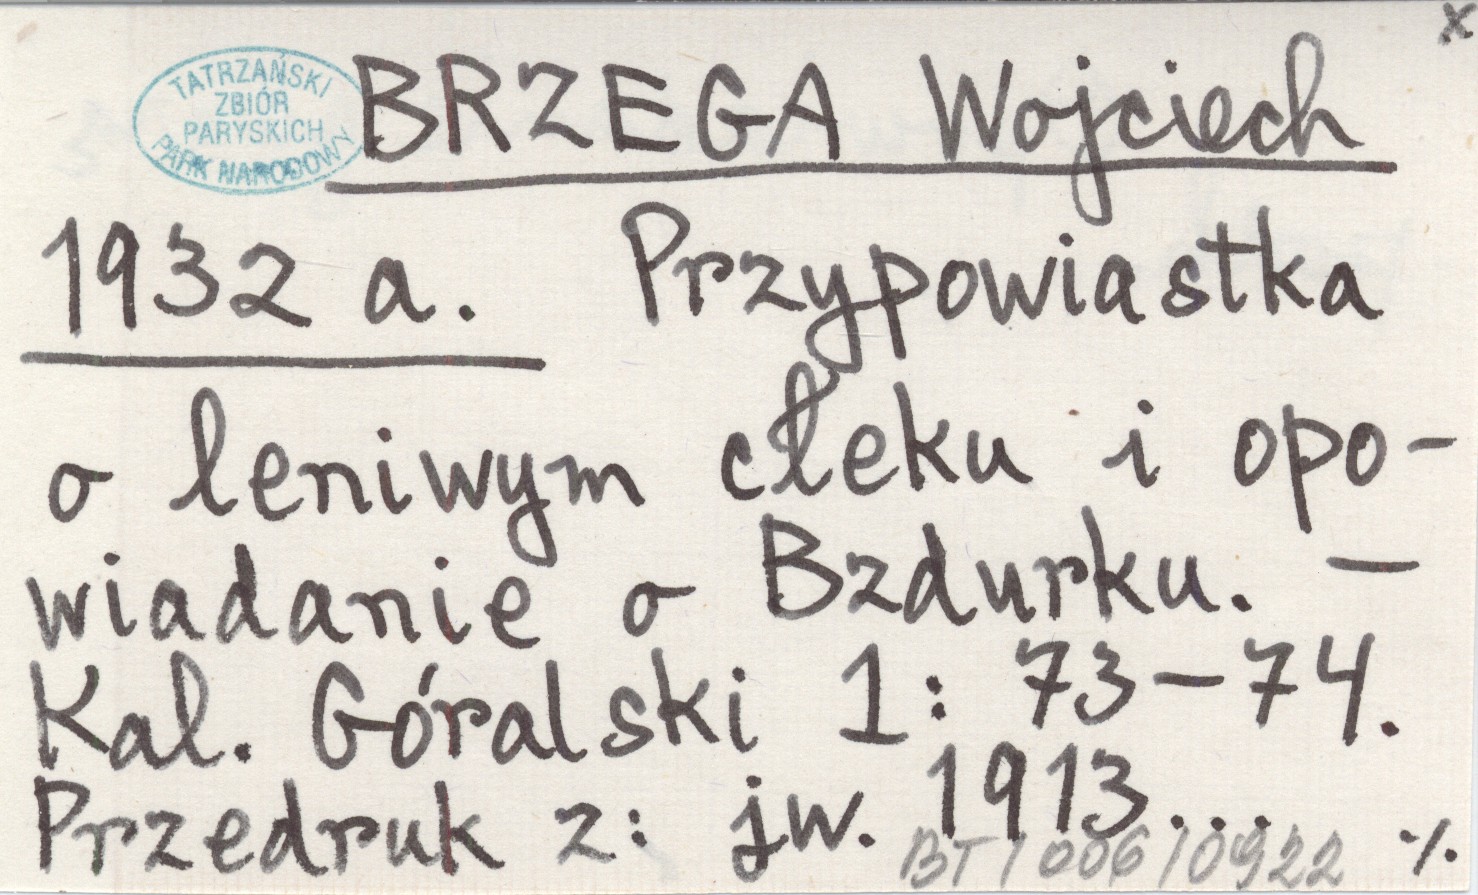 x
TATRZAŃSKI
ZBIÓR
PARYSKICH
PARK NARODOWY
BRZEGA Wojciech
1932 a. Przypowiastka
o leniwym cłeku i opo-
wiadanie o Bzdurku. –
Kal. Góralski 1: 73–74.
Przedruk z: jw. 1913... ·/.
BT/006/0922